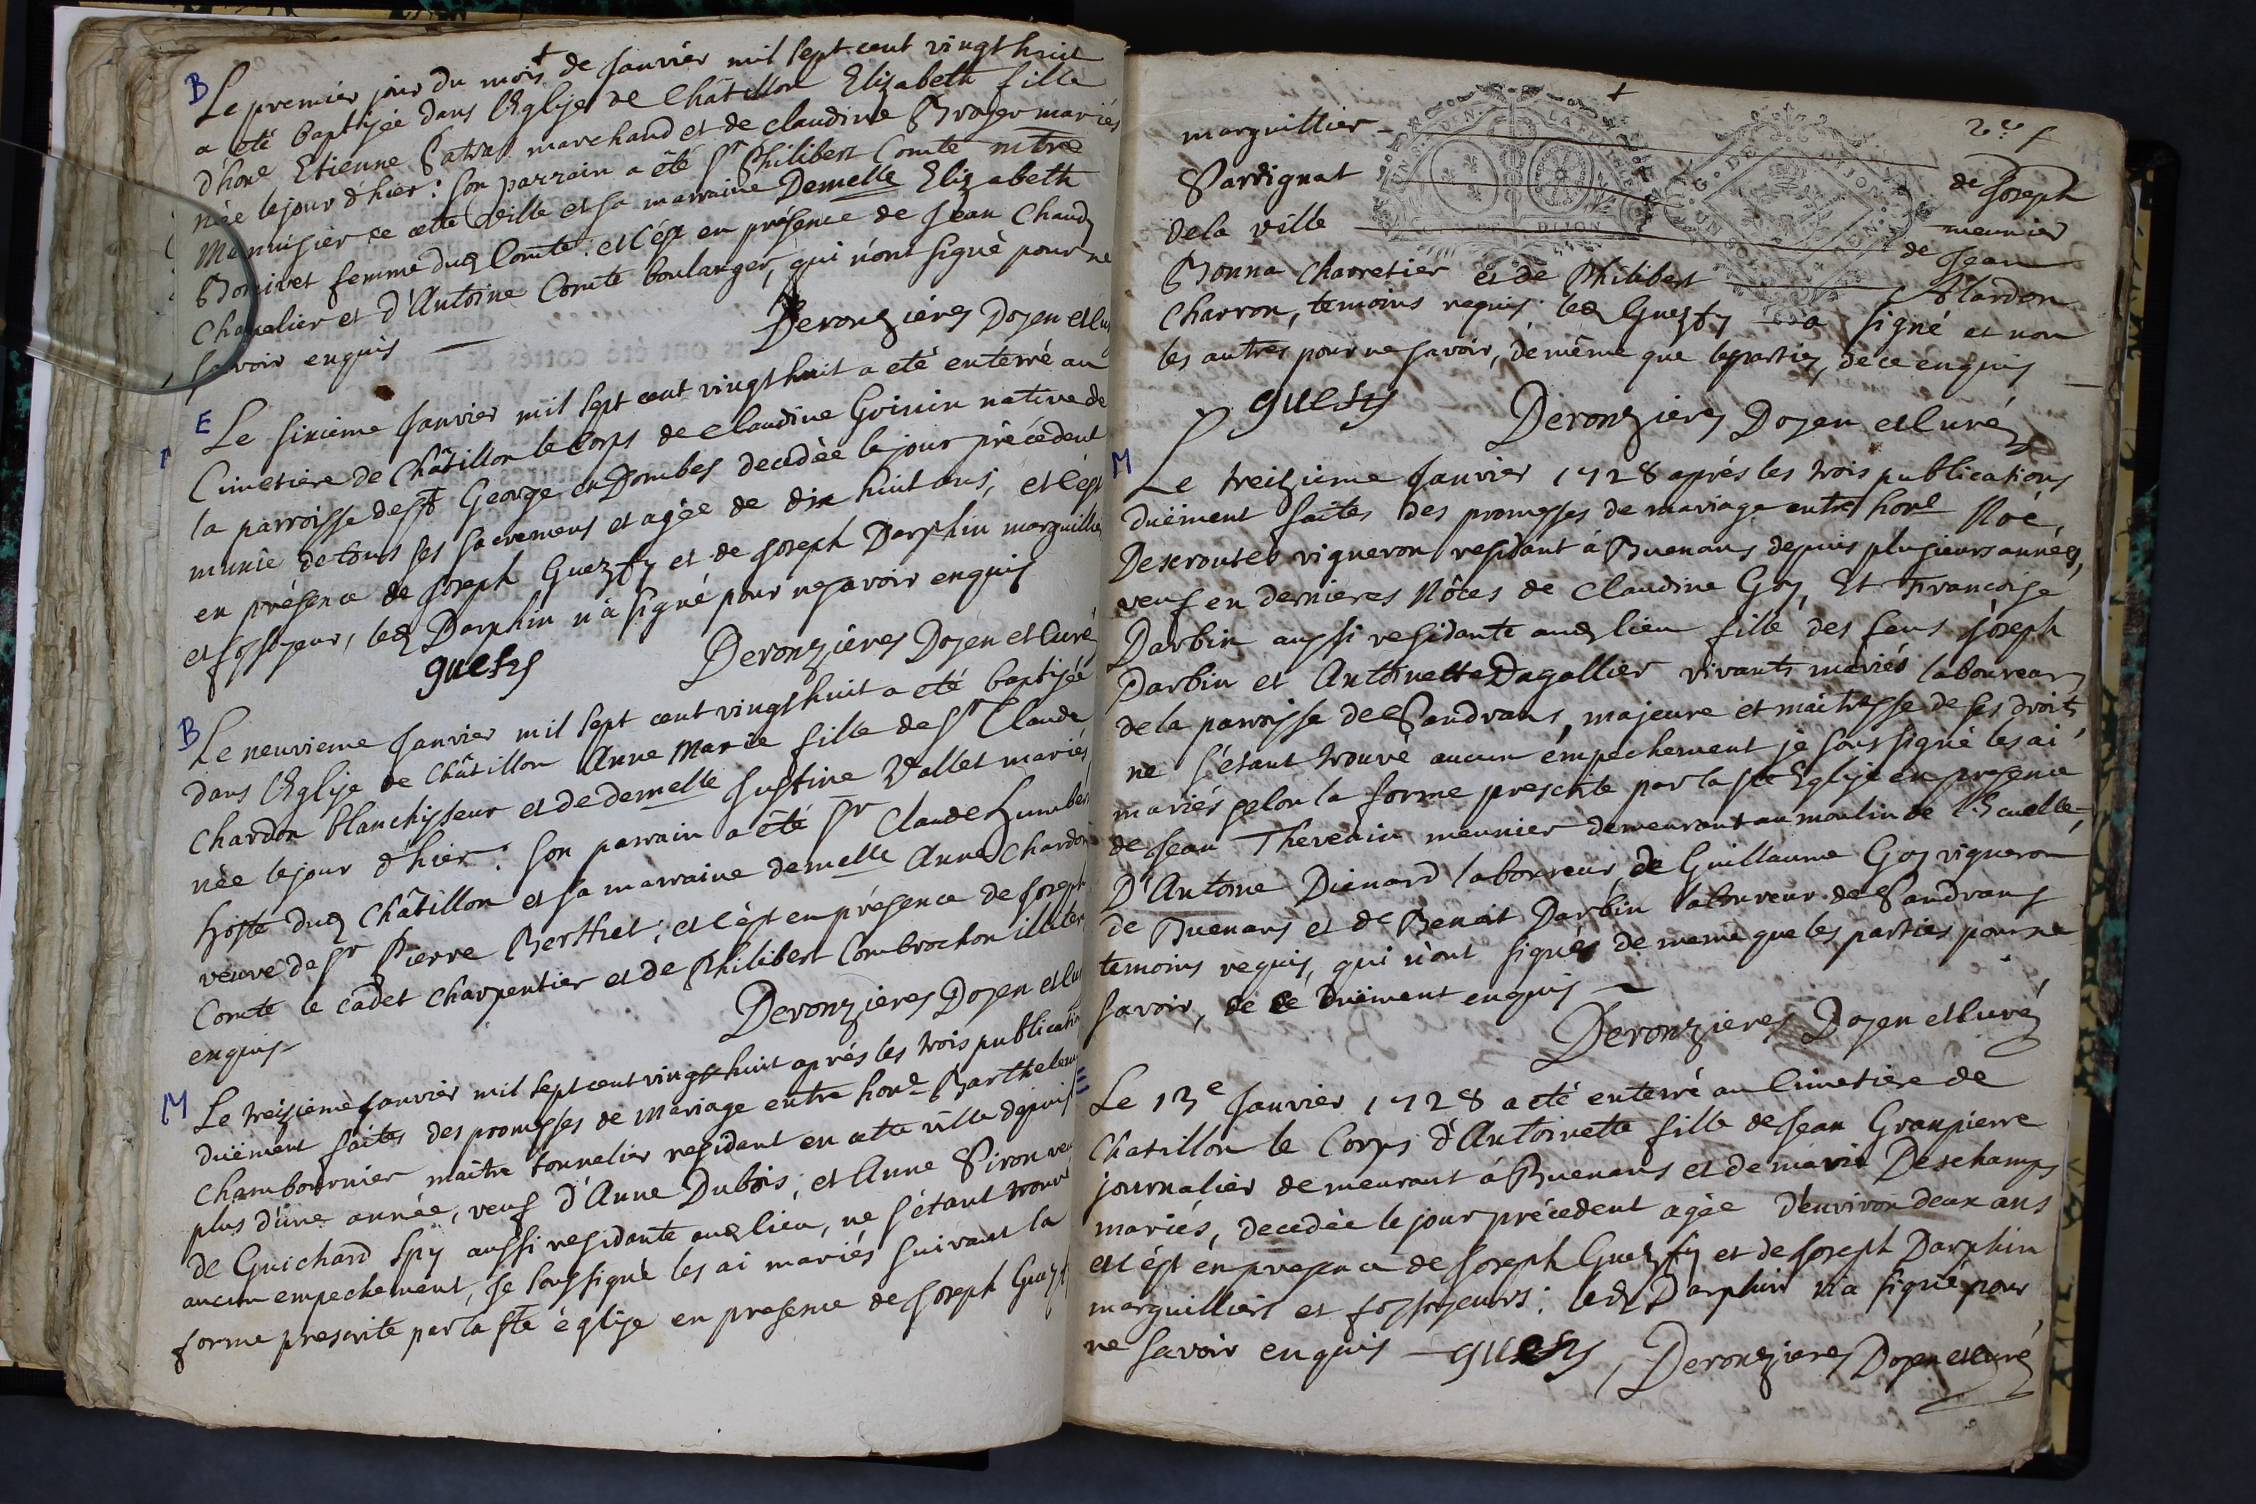 B Le premier jour du mois de Janvier mil sept cent vingt huit
a été baptisée dans l'Eglise de Châtillon Elizabeth fille
d'honle Etienne marchand et de claudine mariés
née le jour d'hier: son parrain a été Sr Philibert Comte mtre
Menuisier de cette ville et sa marraine Demelle Elizabeth
femme dud Comte: et c'est en présence de Jean
Chapelier et d'Antoine Comte boulanger, qui n'ont signé pour ne
savoir enquis
Deronzières Doyen et Cu
E Le sixieme Janvier mil sept cent vingt huit a eté enterré au
Cimetiere de Châtillon le Corps de Claudine native de
la parroisse de St George en Dombes decédée le jour précédent
munie de tous ses sacremens et agée de dix huit ans, et c'est
en présence de Joseph et de Joseph Darphin marguillier
et fossoyeur, led Darphin n'a signé pour ne savoir enquis
Deronzières Doyen et Curé
B Le neuvieme Janvier mil sept cent vingt huit a eté baptisée
dans l'Eglise de Châtillon Anne Marie fille de Sr Claude
Chardon blanchisseur et de demelle Justine Vallet mariés
née le jour d'hier: son parrain a été Sr Claude
hoste dud Châtillon et sa marraine demelle Anne Chardon
veuve de Sr Pierre Berthet; et c'est en présence de Joseph
Comte le cadet charpentier et de Philibert Combrochon
enquis
Deronzieres Doyen et Cu
M Le treizième Janvier mil sept cent vingt huit aprés les trois publications
duëment faites des promesses de mariage entre honle Barthelemi
Chambournier maître tonnelier residant en cette ville depuis
plus d'une année, veuf d'Anne Dubois, et Anne Piron
de Guichard Spy aussi residante aud lieu, ne s'étant trouvé
aucun empechement, Je soussigné les ai mariés suivant la
forme prescrite par la ste église en presence de Joseph
2e f
marguillier de Joseph
Pardignat meunier
de la ville de Jean
Bonna charretier et de Philibert Alardon
Charron, temoins requis led a signé et non
les autres pour ne savoir, de même que les parties, de ce enquis
Deronzieres Doyen et Curé
GEN DE DIJON
M Le treizieme Janvier 1728 aprés les trois publications
duëment faites des promesses de mariage entre honle Noé,
Descroutes vigneron residant á Buenans depuis plusieurs années,
veuf en dernieres Nôces de Claudine Goy, Et Françoise
Darbin aussi residante aud lieu fille des feus Joseph
Darbin et Antoinette Dagallier vivants mariés laboureurs
de la paroisse de Sandrans, majeure et maitresse de ses droits
ne s'étant trouvé aucun émpechement je soussigné les ai
mariés selon la forme prescrite par la ste Eglise en presence
de Jean Thevenin meunier demeurant au moulin de
D'Antoine Dienard laboureur, de Guillaume Goy vigneron
de Buenans et de Benoit Darbin laboureur de Sandrans
temoins requis, qui n'ont signés de meme que les parties pour ne
savoir, de ce duëment enquis
Deronzieres Doyen et Curé
E Le 13e Janvier 1728 a eté enterré au Cimetiere de
Chatillon le Corps d'Antoinette fille de Jean Granpierre
journalier demeurant á Buenans et de marie Deschamps
mariés, decedée le jour précedent agée d'environ deux ans
et c'est en presence de Joseph et de Joseph Darphin
marguilliers et fossoyeurs: led Darphin n'a signé pour
ne savoir enquis Deronzieres Doyen et curé